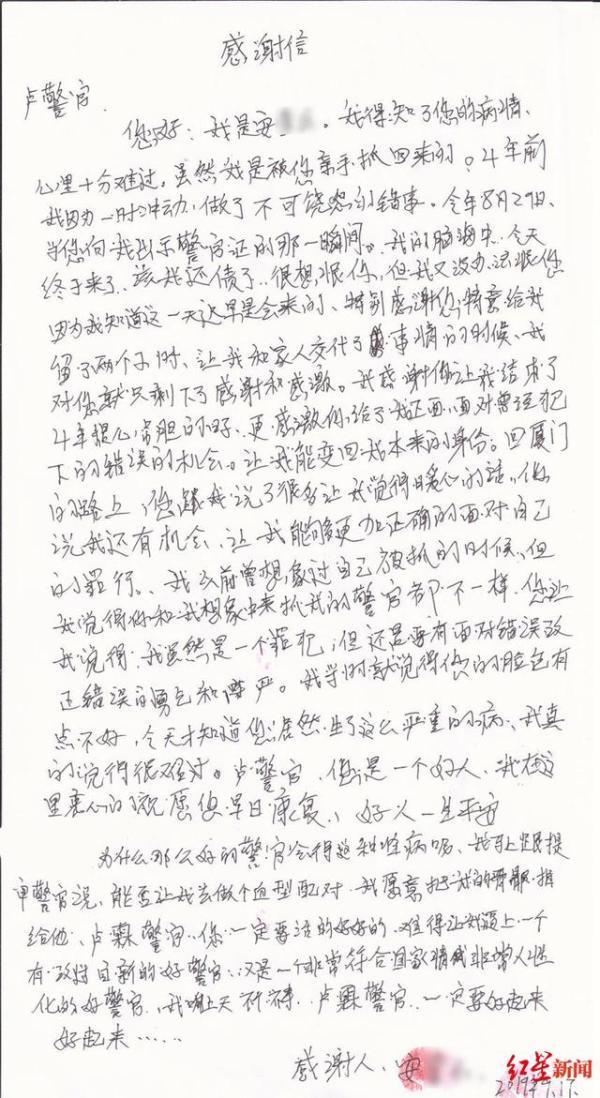 感谢信
卢警官
您好：我是安。我得知了您的病情、
心里十分难过，虽然我是被你亲手抓回来的。4年前
我因为一时冲动，做了不可饶恕的错事。今年8月29日、
当您向我出示警官证的那一瞬间。我的脑海中、今天
终于来了、该我还债了、很想恨你，但我又没办法恨您
因为我知道这一天迟早是会来的、特别感谢您特意给我
留了两个小时、让我和家人交代了事情的时候、我
对您就只剩下了感谢和感激。我感谢你让我结束了
4年提心吊胆的日子、更感激你给了我正面面对曾经犯
下的错误的机会。让我能变回我本来的身份。回厦门
的路上，您跟我说了很多让我觉得暖心的话，你
说我还有机会、让我能够更加正确的面对自己
的罪行、我以前曾想象过自己被抓的时候、但
我觉得你和我想象中来抓我的警官都不一样、您让
我觉得：我虽然是一个罪犯，但还是要有面对错误改
正错误的勇气和尊严。我当时就觉得你的脸色有
点不好，今天才知道您居然生了这么严重的病、我真
的觉得很难过。卢警官、您是一个好人、我在这
里衷心的祝愿您早日康复、好人一生平安
为什么那么好的警官会得这种怪病呢、我马上跟提
审警官说、能否让我去做个血型配对、我愿意把我的骨髓捐
给他、卢警官、你一定要活的好好的、难得让我遇上一个
有改过自新的好警官、又是一个非常符合国家情感非常人性
化的好警官、我向上天祈祷、卢警官、一定要好起来
好起来……
感谢人：安
红星新闻
2019.9.17.